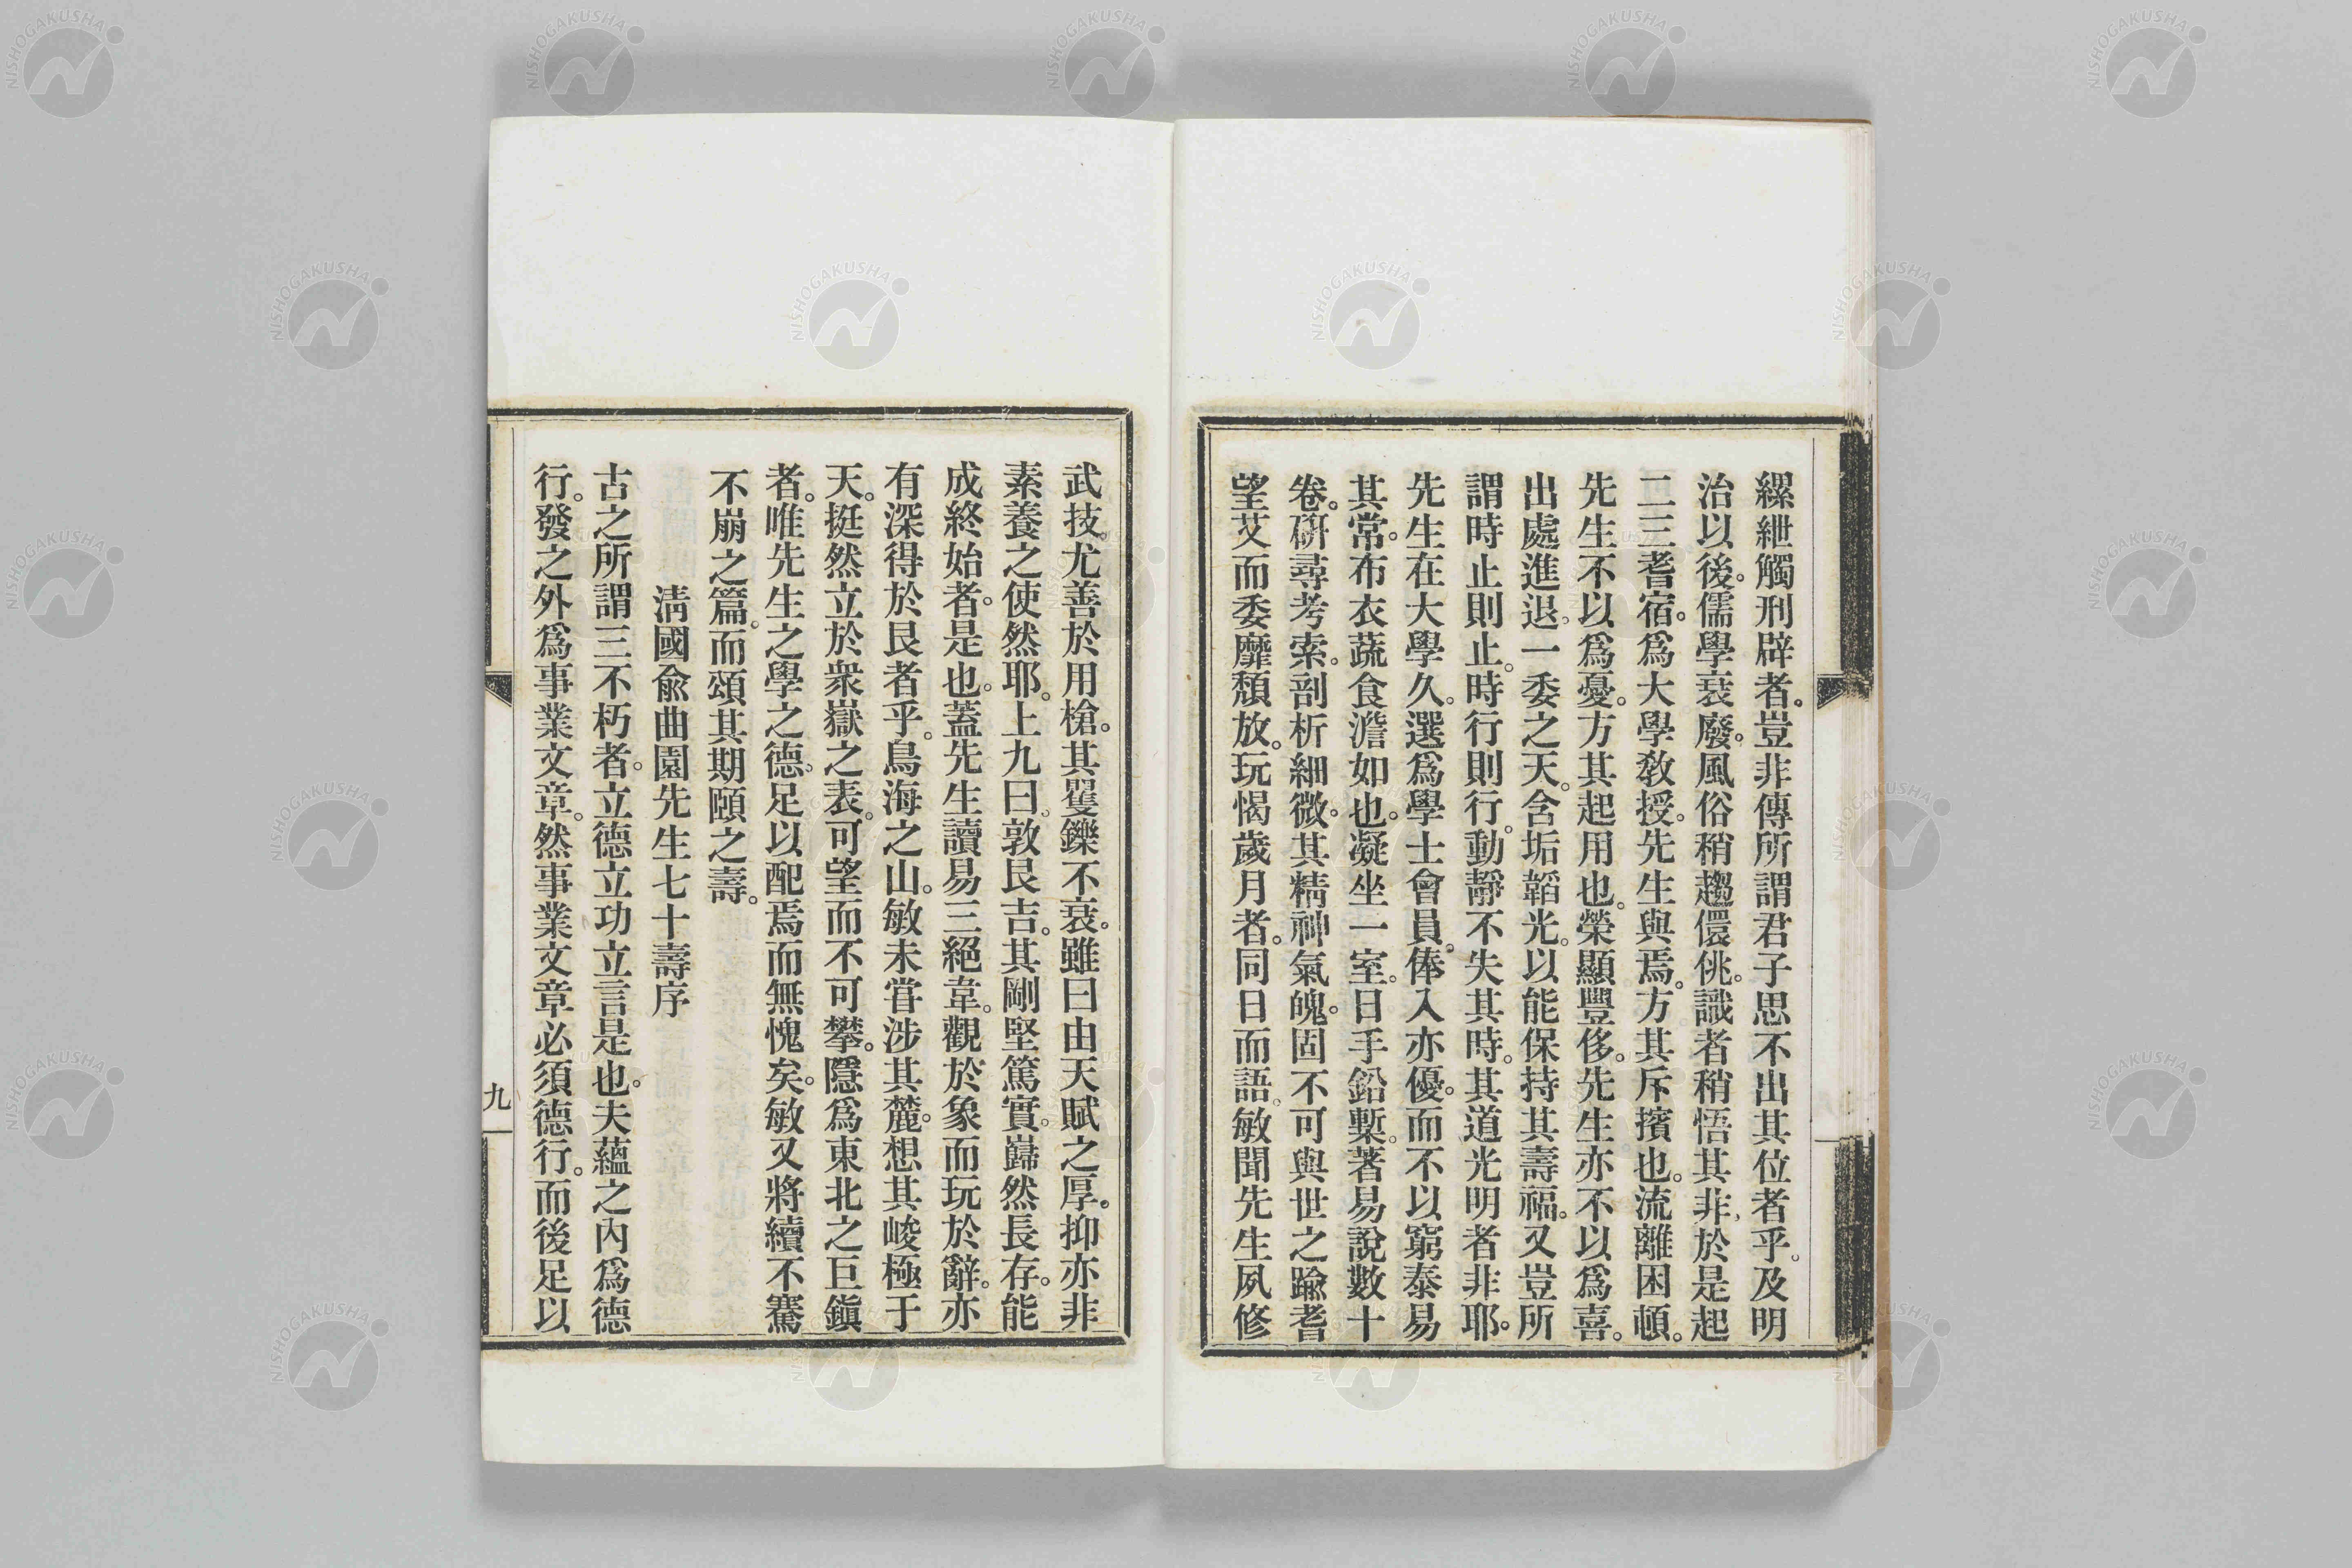 縲紲觸刑辟者。豈非傳所謂君子思不出其位者乎。及明
治以後。儒學衰廢。風俗稍趨儇佻。識者稍悟其非。於是起
二三耆宿。爲大學敎授。先生與焉。方其斥擯也。流離困頓。
先生不以爲憂。方其起用也。榮顯豐侈。先生亦不以爲喜。
出處進退。一委之天。含垢韜光。以能保持其壽福。又豈所
謂時止則止。時行則行。動靜不失其時。其道光明者非耶。
先生在大學久。選爲學士會員。俸入亦優。而不以窮泰易
其常。布衣蔬食澹如也。凝坐一室。日手鉛槧。著易說數十
卷。硏尋考索。剖析細微。其精神氣魄。固不可與世之踰耆
望艾而委靡頹放。玩愒歲月者。同日而語。敏聞先生夙修
武技。尤善於用槍。其矍鑠不衰。雖曰由天賦之厚。抑亦非
素養之使然耶。上九曰。敦艮吉。其剛堅篤實。巋然長存。能
成終始者。是也。蓋先生讀易三絕韋。觀於象而玩於辭。亦
有深得於艮者乎。鳥海之山。敏未嘗涉其麓。想其峻極于
天。挺然立於衆嶽之表。可望而不可攀。隱爲東北之巨鎭
者。唯先生之學之德。足以配焉而無愧矣。敏又將續不騫
不崩之篇。而頌其期頤之壽。
淸國兪曲園先生七十壽序
古之所謂三不朽者。立德立功立言是也。夫蘊之內爲德
行。發之外爲事業文章。然事業文章必須德行。而後足以
九
NISHOGAKUSHA